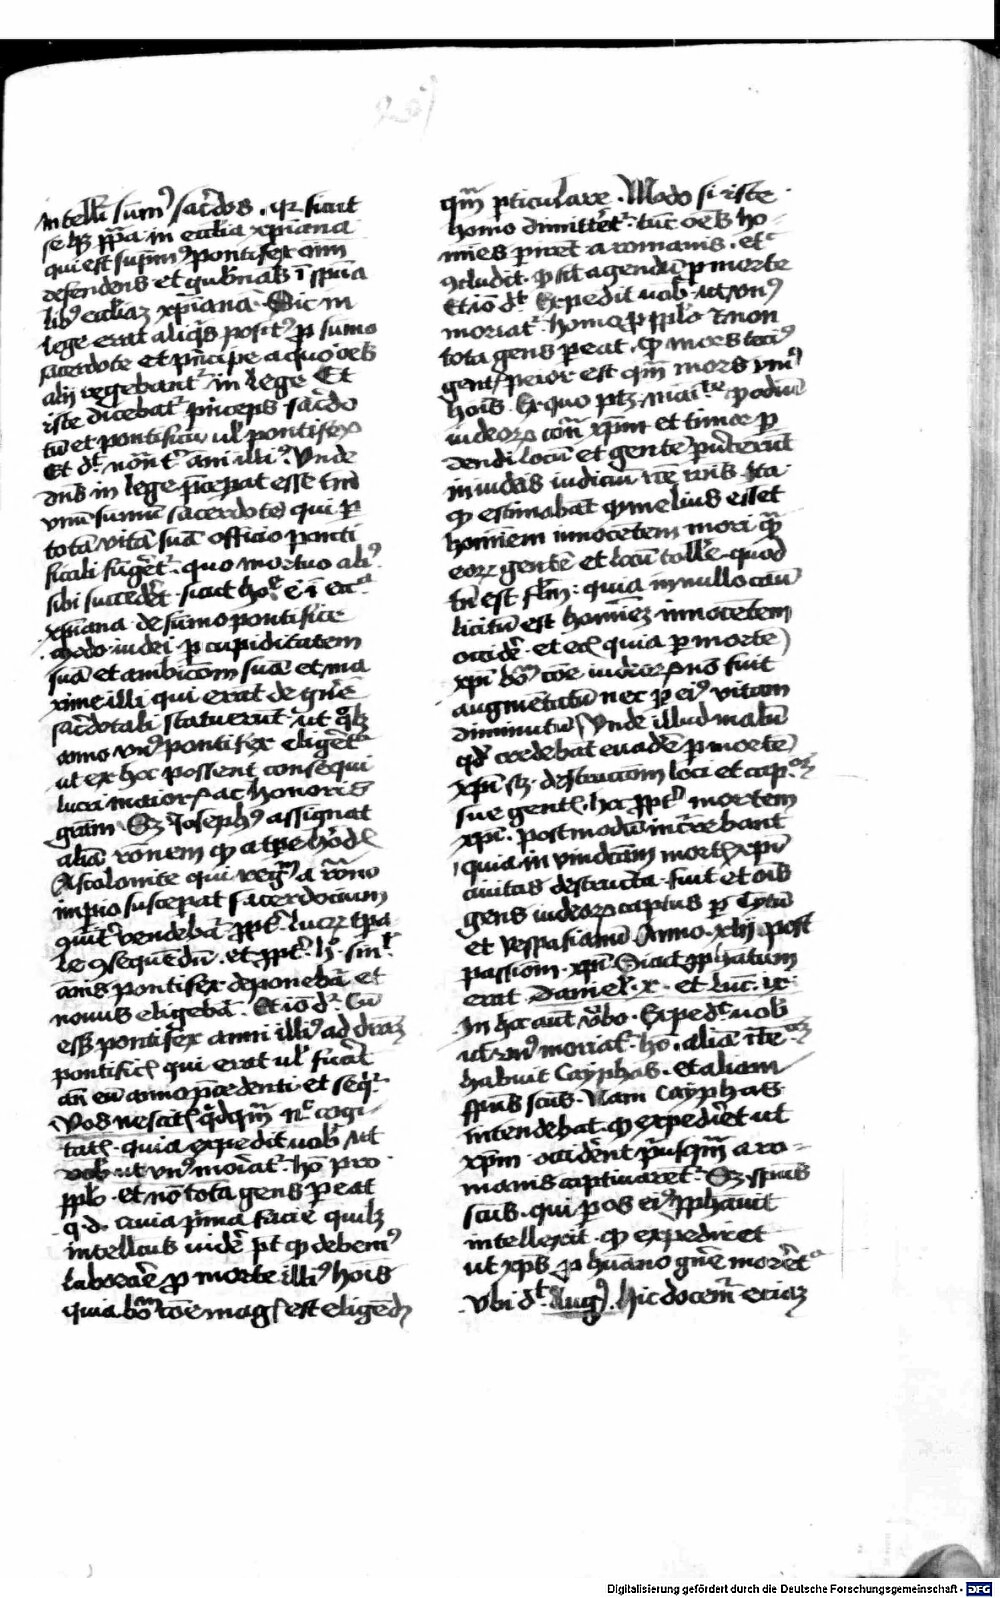 intelli sum⁹ sac̄dos . qr sicut
se hꝫ pp̄a in ecc̄lia xp̄iana
qui est supm̄⁹ pontifex om̄
defendens et gub̄nās ī sp̄ua
lib⁹ ecc̄liaꝫ xp̄ianā . Sic in
lege erat aliq̄s posit⁹ p̄ sum̄o
sacerdote et p̄ncipe a quo oēs
alij regebant᷑ in lege Et
iste dicebat᷑ p̄nceps sac̄do
tū et pontificū ul̄ pontifex
Et dt̄ nōn t᷑ āni illi⁹ . Vnde
dn̄s in lege p̄cepat esse tm̄
vnū sum̄u sacerdotē qui ꝑ
totā vitā suā officio ponti
ficali fūgēt᷑ . quo mortuo ali⁹
sibi succedēt . sicut ho.ͤ ē ī ecc.ͣ
xp̄iana de sum̄o pontifice
modo iudei . ꝑ cupiditatem
suā et ambicōm suā et ma
xime illi qui erāt de gn̄e
sac̄dotali statuerūt . ut qͦlꝫ
anno vn⁹ pontifex eligēt᷑
ut ex hoc possent consequi
lucra maiora ac honoris
grām Sꝫ Joseph⁹ assignat
aliā rōnem qͦ a tp̄e h̄odꝭ
Ascolonite qui regͫ a rōno
imp̄io susceperat sacerdocium
ꝯuēt᷑ vendebāt᷑ ꝓpt᷑ lucꝝ tp̄a
le ꝯsequēdū . et ꝓpt᷑ h̄ . sinḡl᷑
annis pontifex deponebāt᷑ et
nouus eligebāt᷑ . Et iō dr̄ Cū
esꝫ pontifex anni illi⁹ ad dr̄aꝫ
pontificꝭ qui erat ul̄ fu̇at
an̄ eū anno p̄cedenti . et seqr̄
Vos nescitꝭ q̄dq̄m nͨ cogi
tatꝭ . quia expedit uob̄ ut
vob̄ ut vn⁹ moriat᷑ . hō pro
pp̄lo . et nō tota gens peat
q . d . Quia p̄ma facie quilꝫ
intellc̄us uidē pt̄ qͦ debem⁹
laborare p̄ morte illi⁹ hōis
quia bōͫ cōe magꝭ est eligēdū
qͫ ꝑticulare . Modo si iste
homo dimittēt᷑ . tūc oēs ho
mies ꝑirēt a romanis . etͨ
ꝯcludit . ꝓ sit agendū ꝑ morte
Et iō dt̄ Expedit uob̄ . ut vn⁹
moriat᷑ . homo ꝑ pp̄lo ⁊ non
tota gens peat . qͦ mors toci⁹
gentꝭ peior est qͫ mors vni⁹
hōis . Ex quo ptꝫ . maīͭͤ ꝑ odiū
iudeoꝝ con̄ xp̄m et timore ꝑ
dendi locū et gentē ꝑuterūt
in iudās iudiciū rōe rōis . Ita
qͦ estimabāt qͦ melius esset
hominem innocētem mori qͫ
eoꝝ gentē et locū tolle . quod
tn̄ est flm̄ : quia in nullo casū
licitū est hominēꝫ innocētem
occidē . et etꝭ quia ꝑ mortē
xp̄i bōͫ cōe iudeoꝝ nō fuit
augmētatū nec ꝑ ei⁹ vitam
diminutū Vnde illud malū
qd̄ credebāt euadē ꝑ mortē
xp̄i sꝫ . destructōm loci et cap.ͦꝫ
sue gentꝭ . hͨ ꝓpt᷑ mortem
xp̄i . postmodū incr̄rebant
quia in vindictāꝫ mortꝭ xp̄i
ciuitas destructa . fuit et oīs
gens iudeoꝝ captus ꝑ Tytū
et Vespasianū Anno . xlij . post
passionꝫ . xp̄i Sicut ꝓphatum
erat Daniel . x . et luc̄ . ix .
In hͨ aut̄ v̄bo . Expedͭ . uob̄
ut vn⁹ moriat᷑ . ho . aliā int̄ē.ͦꝫ
habuit Cayphas . et aliam
sp̄us scūs . Nam Cayphas
intendebat . qͦ expediret ut
xp̄m occidēnt pͥusqͫ a ro
manis captiuarēt᷑ . Sꝫ sp̄us
scūs . qui ꝑ os ei⁹ ꝓphauit
intellexit . qͦ expediret
ut xp̄s p̄ hūano gn̄e morēt᷑
Vbi dt̄ Aug⁹ . hic docem᷑ eciaꝫ